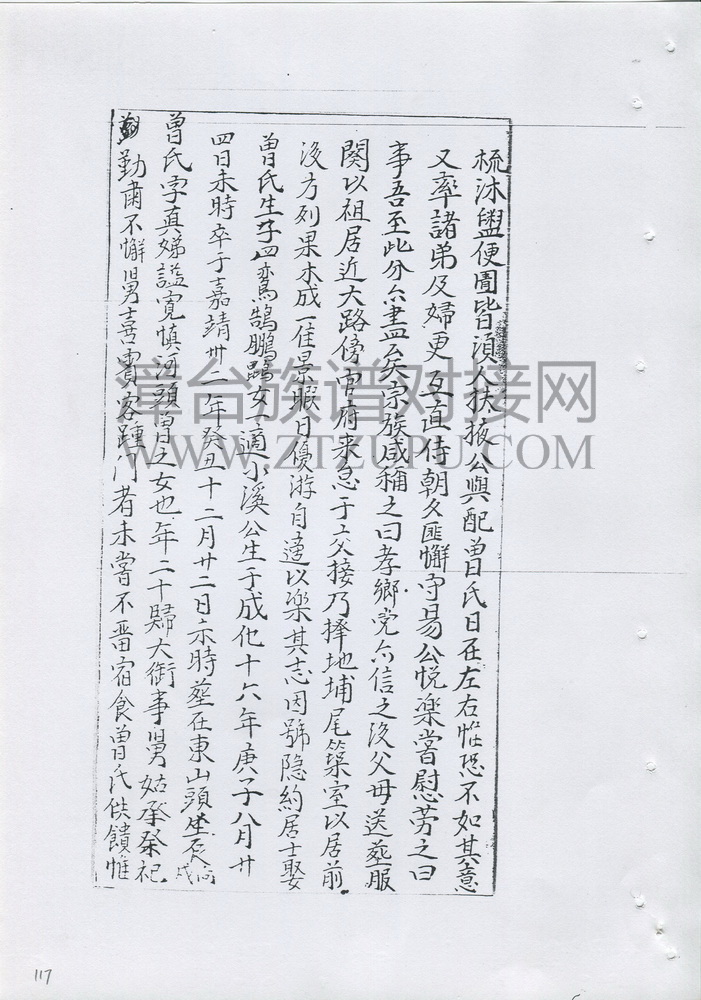 梳沐盥便圊皆須人扶掖公與配曾氏日在左右惟恐不如其意
又率諸弟及婦更互直侍朝夕匪懈守易公悅楽嘗慰劳之曰
事吾至此分亦盡矣宗族咸稱之曰孝鄉党亦信之没父母送塟服
闋以祖居近大路傍官府来急于交接乃择地埔尾築室以居前
後方列果木成一佳景暇日優游自適以楽其志因號隐約居士娶
曾氏生子四鸞鵠鵬鶚女一適小溪公生于成化十六年庚子八月廿
四日未時卒于嘉靖卅二年癸丑十二月廿二日亦時塟在東山頭坐辰向戌
曾氏字真娣謚寬慎河頭曾之女也年二十歸大衙事舅姑承祭祀
勤肅不懈舅喜賓客踵门者未嘗不畱宿食曾氏供饋惟
漳台族谱对接网
WWW.ZTZUPU.COM
117